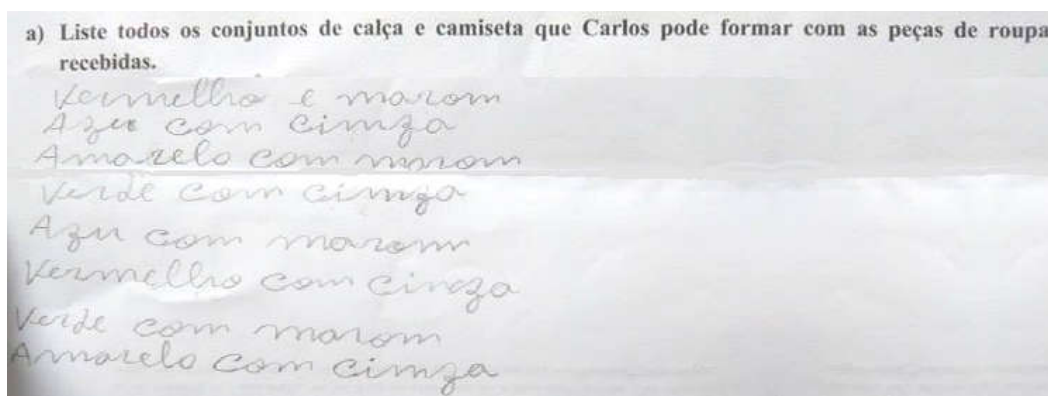 a) Liste todos os conjuntos de calça e camiseta que Carlos pode formar com as peças de roupa
recebidas.
Vermelho e marom
Azu com cimza
Amarelo com marom
Verde com cimza
Azu com marom
Vermelho com cinza
Verde com marom
Amarelo com cimza